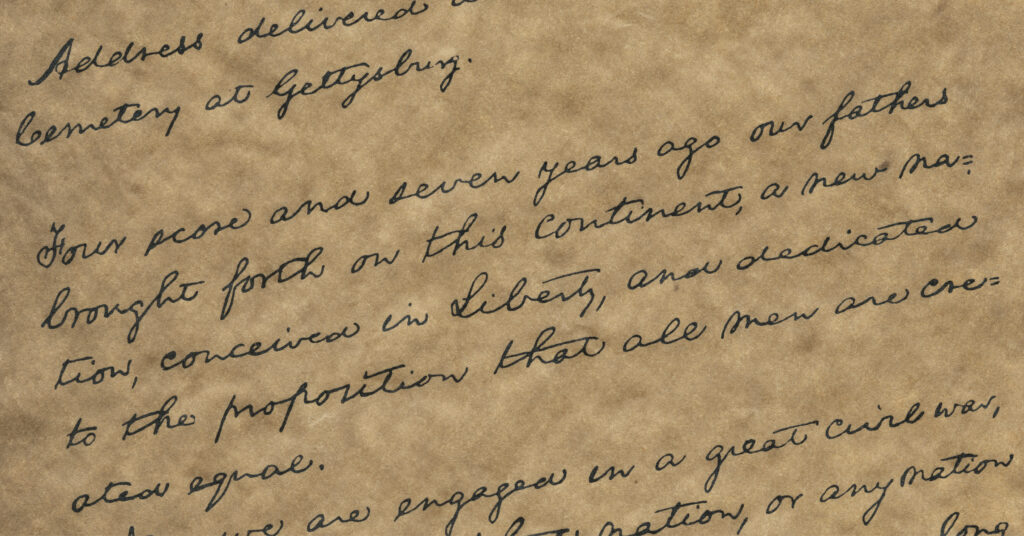 Address delivered
Cemetery at Gettysburg.
Four score and seven years ago our fathers
brought forth on this continent, a new na=
tion, conceived in Liberty, and dedicated
to the proposition that all men are cre=
ated equal.
we are engaged in a great civil war,
nation, or any nation
long